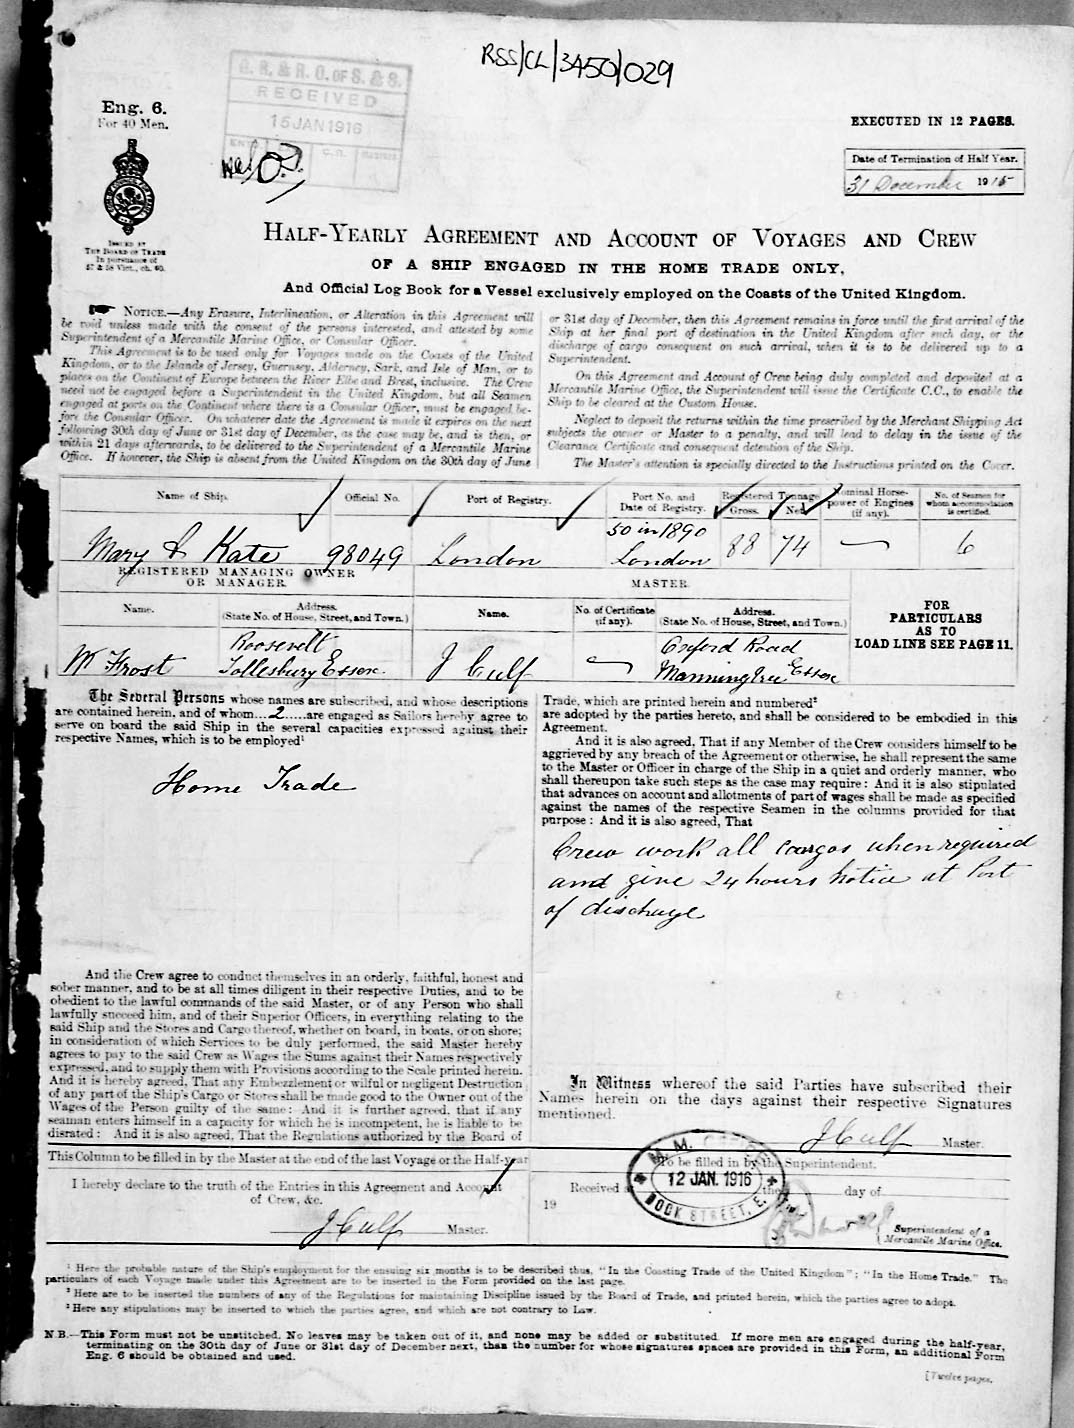 RSS/CL/3450/029
G. R. & R. O. OF S. & S.
RECEIVED
15 JAN 1916
Eng. 6.
For 40 Men.
EXECUTED IN 12 PAGES.
Date of Termination of Half Year.
31 December 1915
ISSUED BY
THE BOARD OF TRADE
In pursuance of
57 & 58 Vict., ch. 60.
HALF-YEARLY AGREEMENT AND ACCOUNT OF VOYAGES AND CREW
OF A SHIP ENGAGED IN THE HOME TRADE ONLY,
And Official Log Book for a Vessel exclusively employed on the Coasts of the United Kingdom.
NOTICE.—Any Erasure, Interlineation, or Alteration in this Agreement will
be void unless made with the consent of the persons interested, and attested by some
Superintendent of a Mercantile Marine Office, or Consular Officer.
This Agreement is to be used only for Voyages made on the Coasts of the United
Kingdom, or to the Islands of Jersey, Guernsey, Alderney, Sark, and Isle of Man, or to
places on the Continent of Europe between the River Elbe and Brest, inclusive. The Crew
need not be engaged before a Superintendent in the United Kingdom, but all Seamen
engaged at ports on the Continent where there is a Consular Officer, must be engaged be-
fore the Consular Officer. On whatever date the Agreement is made it expires on the next
following 30th day of June or 31st day of December, as the case may be, and is then, or
within 21 days afterwards, to be delivered to the Superintendent of a Mercantile Marine
Office. If however, the Ship is absent from the United Kingdom on the 30th day of June
or 31st day of December, then this Agreement remains in force until the first arrival of the
Ship at her final port of destination in the United Kingdom after such day, or the
discharge of cargo consequent on such arrival, when it is to be delivered up to a
Superintendent.
On this Agreement and Account of Crew being duly completed and deposited at a
Mercantile Marine Office, the Superintendent will issue the Certificate C.C., to enable the
Ship to be cleared at the Custom House.
Neglect to deposit the returns within the time prescribed by the Merchant Shipping Act
subjects the owner or Master to a penalty, and will lead to delay in the issue of the
Clearance Certificate and consequent detention of the Ship.
The Master's attention is specially directed to the Instructions printed on the Cover.
Name of Ship. Official No. Port of Registry. Port No. and Date of Registry. Registered Tonnage Gross. Net. Nominal Horse-power of Engines (if any). No. of Seamen for whom accommodation is certified.
Mary & Kate 98049 London 50 in 1890 London 88 74 6
REGISTERED MANAGING OWNER
OR MANAGER.
MASTER.
Name. Address. (State No. of House, Street, and Town.) Name. No. of Certificate (if any). Address. (State No. of House, Street, and Town.)
FOR
PARTICULARS
AS TO
LOAD LINE SEE PAGE 11.
W Frost Roosevelt Tollesbury Essex J Culf Oxford Road Manningtree Essex
The Several Persons whose names are subscribed, and whose descriptions
are contained herein, and of whom...2.....are engaged as Sailors hereby agree to
serve on board the said Ship in the several capacities expressed against their
respective Names, which is to be employed¹
Home Trade
And the Crew agree to conduct themselves in an orderly, faithful, honest and
sober manner, and to be at all times diligent in their respective Duties, and to be
obedient to the lawful commands of the said Master, or of any Person who shall
lawfully succeed him, and of their Superior Officers, in everything relating to the
said Ship and the Stores and Cargo thereof, whether on board, in boats, or on shore;
in consideration of which Services to be duly performed, the said Master hereby
agrees to pay to the said Crew as Wages the Sums against their Names respectively
expressed, and to supply them with Provisions according to the Scale printed herein.
And it is hereby agreed, That any Embezzlement or wilful or negligent Destruction
of any part of the Ship's Cargo or Stores shall be made good to the Owner out of the
Wages of the Person guilty of the same: And it is further agreed, that if any
seaman enters himself in a capacity for which he is incompetent, he is liable to be
disrated: And it is also agreed, That the Regulations authorized by the Board of
Trade, which are printed herein and numbered²
are adopted by the parties hereto, and shall be considered to be embodied in this
Agreement.
And it is also agreed, That if any Member of the Crew considers himself to be
aggrieved by any breach of the Agreement or otherwise, he shall represent the same
to the Master or Officer in charge of the Ship in a quiet and orderly manner, who
shall thereupon take such steps as the case may require: And it is also stipulated
that advances on account and allotments of part of wages shall be made as specified
against the names of the respective Seamen in the columns provided for that
purpose: And it is also agreed, That
Crew work all Cargos when required
and give 24 hours Notice at Port
of discharge
In Witness whereof the said Parties have subscribed their
Names herein on the days against their respective Signatures
mentioned.
J Culf Master.
This Column to be filled in by the Master at the end of the last Voyage or the Half-year
I hereby declare to the truth of the Entries in this Agreement and Account
of Crew, &c.
J Culf Master.
To be filled in by the Superintendent.
Received at the day of
19
M. M. OFFICE
12 JAN. 1916
DOCK STREET, E.
Superintendent of a
Mercantile Marine Office.
¹ Here the probable nature of the Ship's employment for the ensuing six months is to be described thus, "In the Coasting Trade of the United Kingdom"; "In the Home Trade." The
particulars of each Voyage made under this Agreement are to be inserted in the Form provided on the last page.
² Here are to be inserted the numbers of any of the Regulations for maintaining Discipline issued by the Board of Trade, and printed herein, which the parties agree to adopt.
³ Here any stipulations may be inserted to which the parties agree, and which are not contrary to Law.
N.B.—This Form must not be unstitched. No leaves may be taken out of it, and none may be added or substituted. If more men are engaged during the half-year,
terminating on the 30th day of June or 31st day of December next, than the number for whose signatures spaces are provided in this Form, an additional Form
Eng. 6 should be obtained and used.
[Twelve pages.